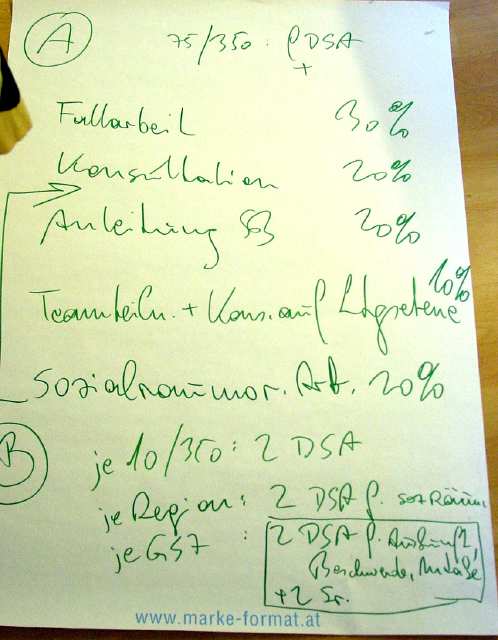 A 75/350 : DSA
+
Fallarbeit 30%
Konsultation 20%
Anleitung 20%
10%
Teamteiln. + Kons. auf Ltgsebene
Sozialraumor. Arb. 20%
B je 10/350 : 2 DSA
je Region : 2 DSA f. sozRäuml
je GST : 2 DSA f. Auskunft,
Beschwerde, Anlaße
+ 2 Sr.
www.marke-format.at